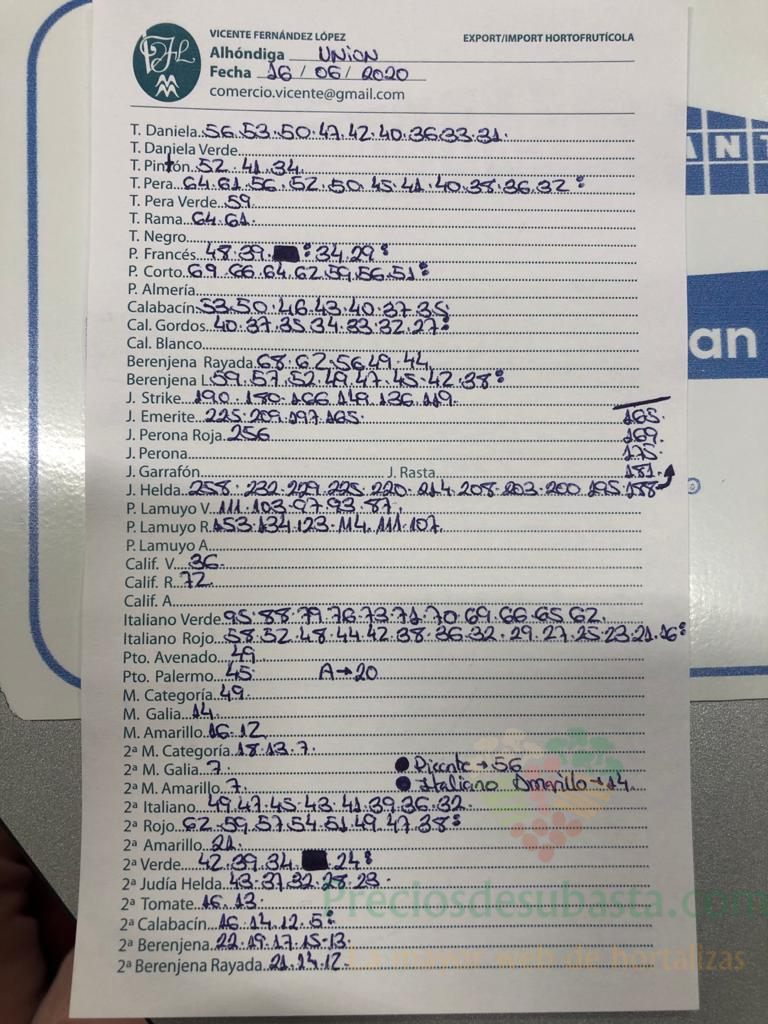 VICENTE FERNÁNDEZ LÓPEZ EXPORT/IMPORT HORTOFRUTÍCOLA
Alhóndiga UNION
Fecha 16 / 06 / 2020
comercio.vicente@gmail.com
T. Daniela 56.53.50.47.42.40.36.33.31.
T. Daniela Verde
T. Pintón 52.41.34.
T. Pera 64.61.56.52.50.45.41.40.38.36.32:
T. Pera Verde 59.
T. Rama 64.61.
T. Negro
P. Francés 48.39. : 34.29:
P. Corto 69.66.64.62.59.56.51:
P. Almería
Calabacín 53.50.46.43.40.37.35:
Cal. Gordos 40.37.35.34.33.32.27:
Cal. Blanco
Berenjena Rayada 68.62.56.49.44.
Berenjena L. 59.57.52.49.47.45.42.38:
J. Strike 190.180.166.149.136.119.
J. Emerite 225.209.197.165. 165.
J. Perona Roja 256 169.
J. Perona 175.
J. Garrafón J. Rasta 181.
J. Helda 258.232.229.225.220.214.208.203.200.195.188
P. Lamuyo V. 111.103.97.93.87.
P. Lamuyo R. 153.134.123.114.111.107.
P. Lamuyo A.
Calif. V. 36.
Calif. R. 72.
Calif. A.
Italiano Verde 95.88.79.76.73.71.70.69.66.65.62.
Italiano Rojo 58.52.48.44.42.38.36.32.29.27.25.23.21.16:
Pto. Avenado 49.
Pto. Palermo 45. A→20
M. Categoría 49.
M. Galia 14.
M. Amarillo 16.12.
2ª M. Categoría 18.13.7.
2ª M. Galia 7. Picante → 56
2ª M. Amarillo 7. Italiano Amarillo → 14.
2ª Italiano 49.47.45.43.41.39.36.32.
2ª Rojo 62.59.57.54.51.49.47.38:
2ª Amarillo 21.
2ª Verde 42.39.34. 24:
2ª Judía Helda 43.37.32.28.23.
2ª Tomate 16.13.
Preciosdesubasta.com
2ª Calabacín 16.14.12.5:
2ª Berenjena 22.19.17.15.13.
La mayor web de hortalizas
2ª Berenjena Rayada 21.14.12.
ANT
an